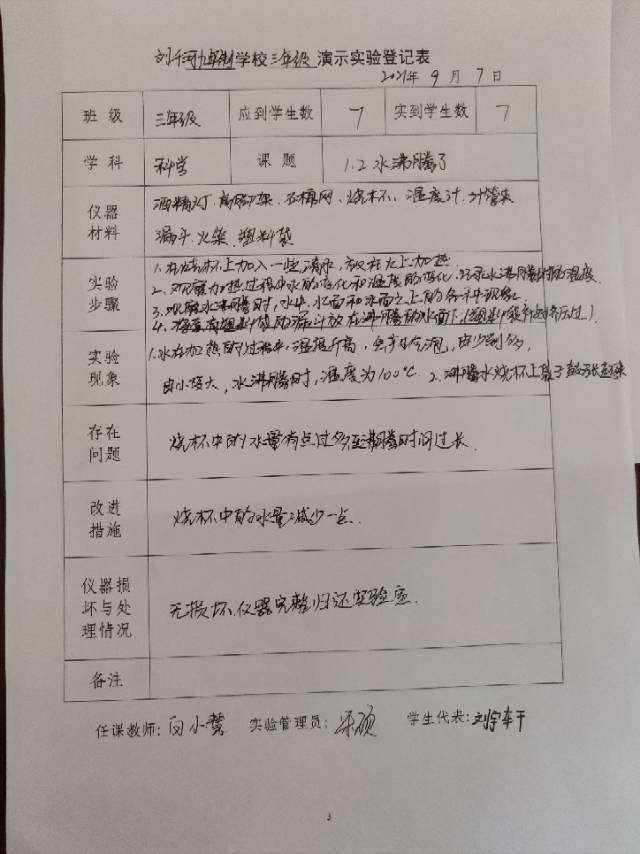 刘行河九年制学校三年级演示实验登记表
2021年9月7日
班级 三年级 应到学生数 7 实到学生数 7
学科 科学 课题 1.2水沸腾了
仪器材料
酒精灯、石棉网、烧杯、温度计、
漏斗、火柴、塑料袋
实验步骤
1.在烧杯上加入一些清水,放在火上加热
2.观察加热过程中水的变化和温度的变化,记录水沸腾时的温度.
3.观察水沸腾时,水中、水面和水面之上的各种现象.
4.塑料袋的漏斗放在沸腾的水面上(塑料袋
实验现象
1.水在加热的过程中,温度升高,会产生气泡,由少到多,
由小变大,水沸腾时,温度为100℃ 2.沸腾水烧杯上
存在问题
烧杯中的水量有点过多至沸腾时间过长.
改进措施
烧杯中的水量减少一点.
仪器损坏与处理情况
无损坏,仪器完整归还实验室.
备注
任课教师: 小莺 实验管理员: 硕 学生代表: 刘宇轩
3